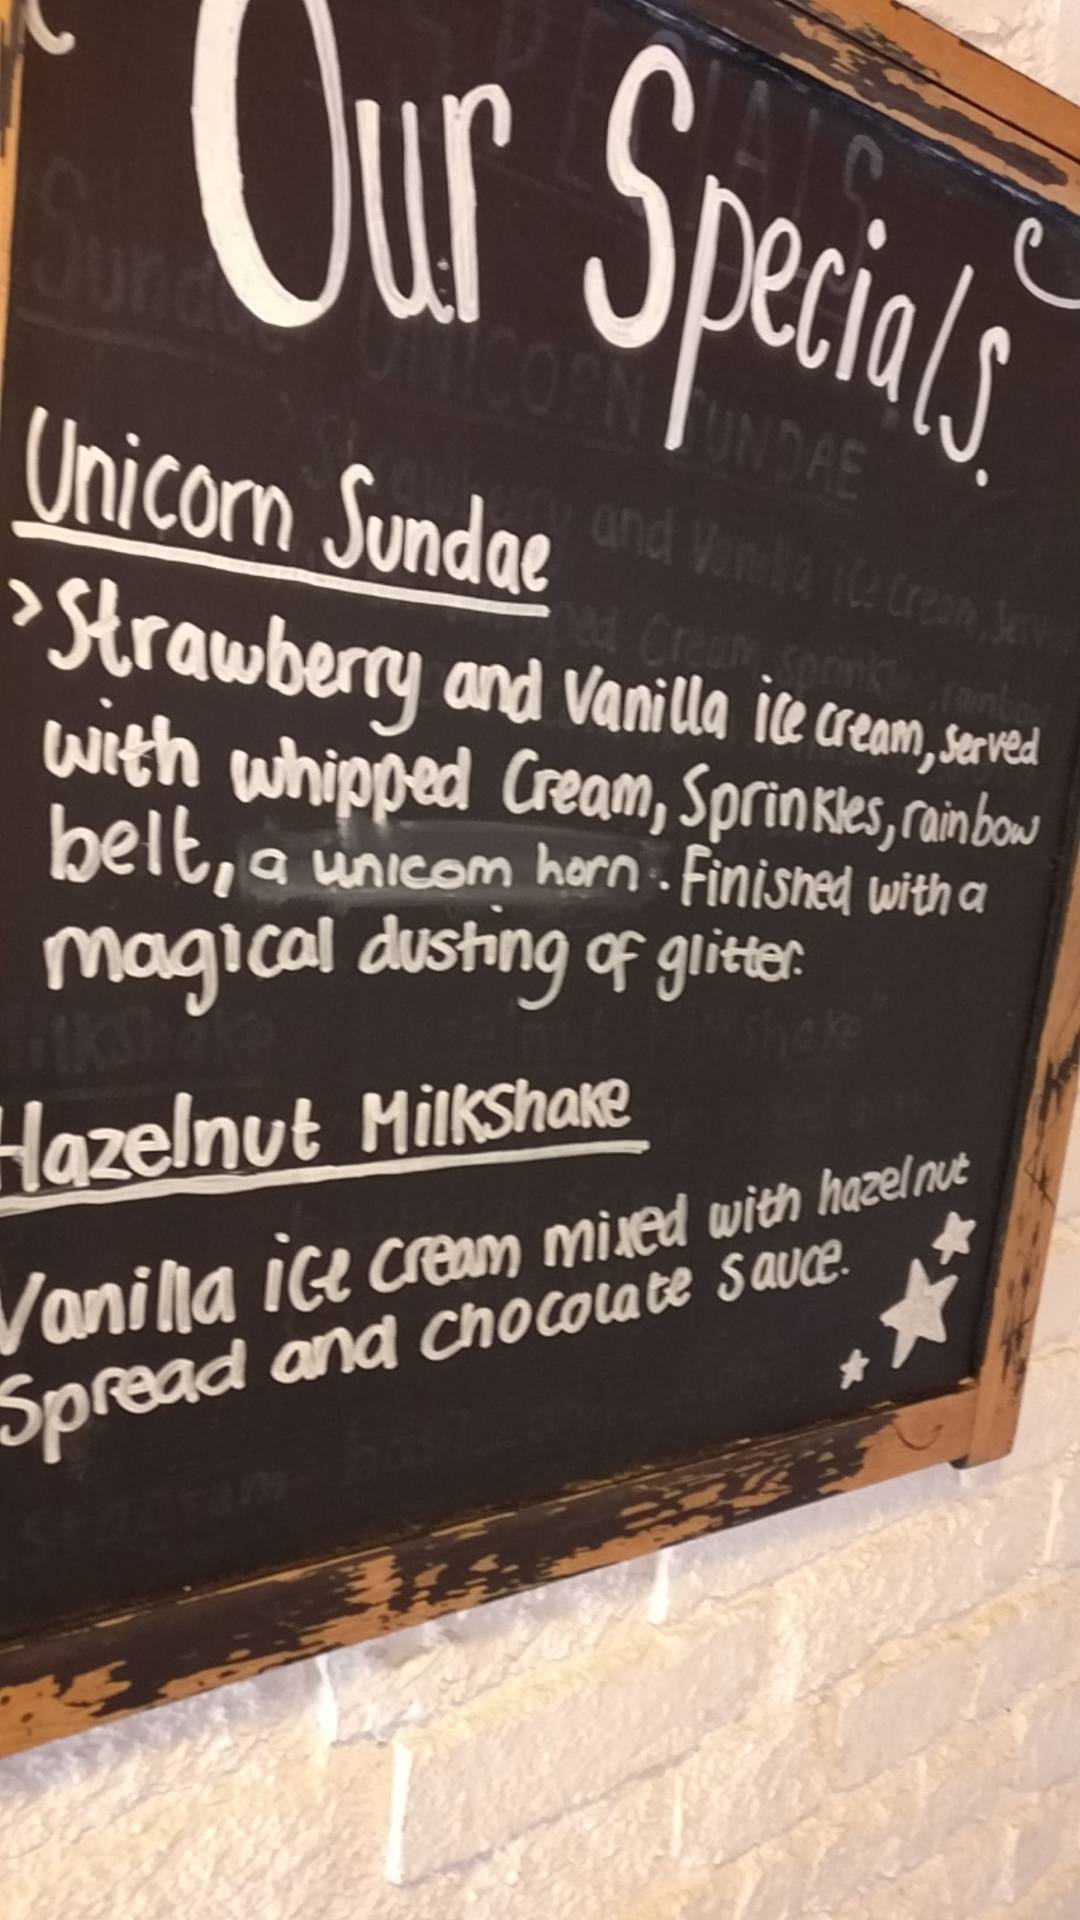 Our Specials.
Unicorn Sundae
> Strawberry and Vanilla ice cream, served
with whipped Cream, Sprinkles, rainbow
belt, a unicorn horn. Finished with a
magical dusting of glitter.
Hazelnut Milkshake
Vanilla ice cream mixed with hazelnut
Spread and chocolate sauce.